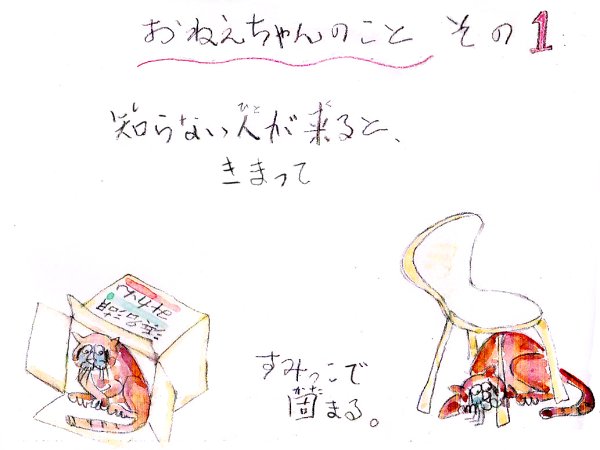 おねえちゃんのこと その1
知らない人が来ると、
きまって
すみっこで
固まる。